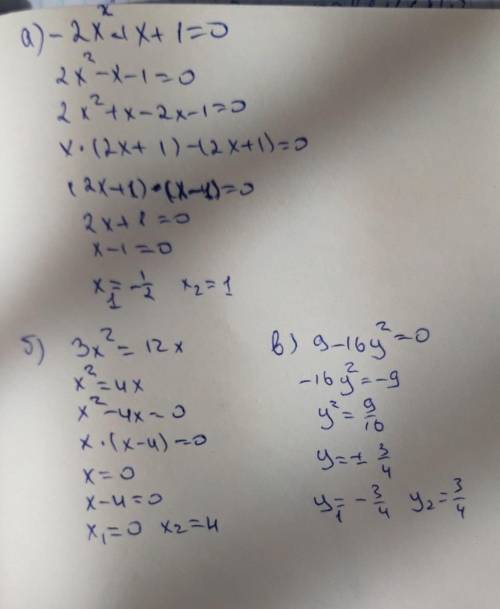 а) -2x²+x+1=0
2x²-x-1=0
2x²+x-2x-1=0
x·(2x+1)-(2x+1)=0
(2x+1)·(x-1)=0
2x+1=0
x-1=0
x₁=-1/2 x₂=1
б) 3x²=12x
x²=4x
x²-4x=0
x·(x-4)=0
x=0
x-4=0
x₁=0 x₂=4
в) 9-16y²=0
-16y²=-9
y²=9/16
y=±3/4
y₁=-3/4 y₂=3/4